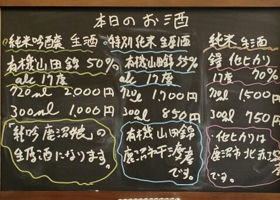 本日のお酒
純米吟醸 生酒
有機山田錦 50%
alc 17度
720ml 2,000円
300ml 1,000円
「純吟 鹿沼娘」の
生原酒になります。
特別純米 生原酒
有機山田錦 55%
alc 17度
720ml 1,700円
300ml 850円
有機山田錦
です。
純米 生酒
17度 70%
1,500円
300ml 750円
化ヒカリは
鹿沼市
です。